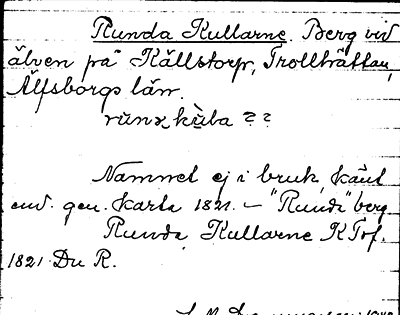 Runda Kullarne. Berg vid
älven på Källstorp, Trollhättan,
Älfsborgs län.
kùla ??
Namnet ej i bruk, känt
enl. gen. karta 1821. – "Runda" berg
Runda Kullarne K Tof.
1821 Du R.